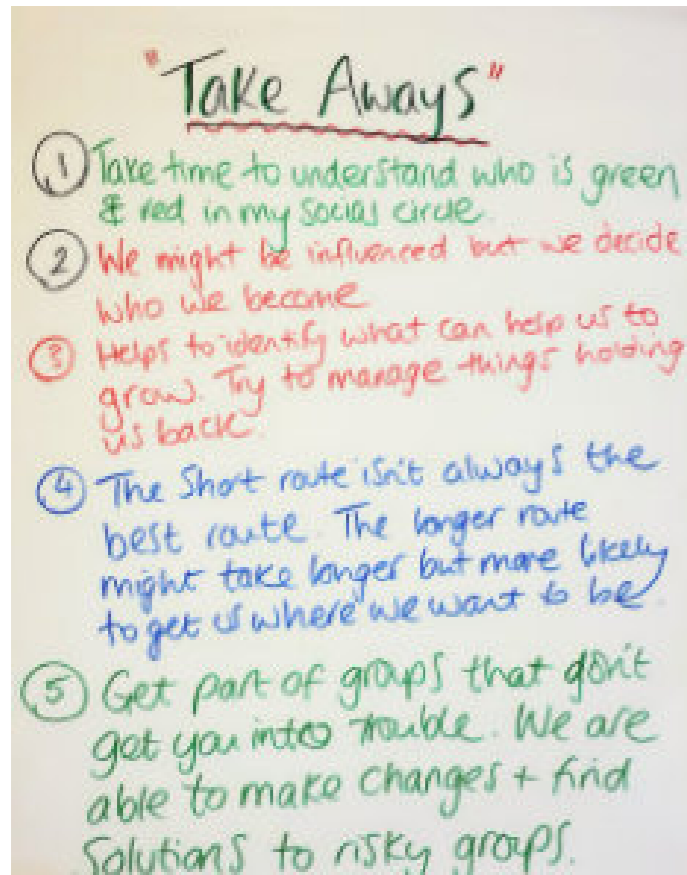 "Take Aways"
1 Take time to understand who is green
& red in my social circle.
2 We might be influenced but we decide
who we become
3 Helps to identify what can help us to
grow. Try to manage things holding
us back.
4 The Short route isn't always the
best route. The longer route
might take longer but more likely
to get us where we want to be.
5 Get part of groups that don't
get you into trouble. We are
able to make changes + find
Solutions to risky groups.